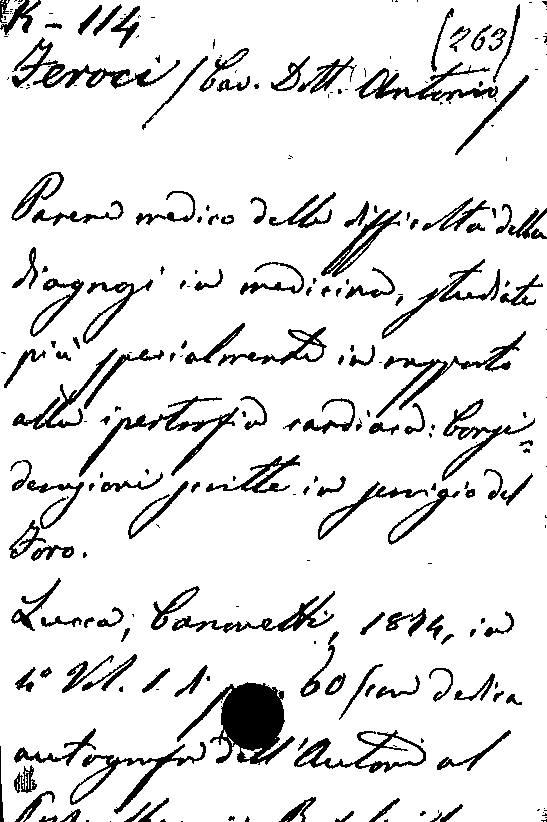 K-114
(263)
Feroci (Cav. Dott. Antonio)
Parere medico delle difficoltà della
diagnosi in medicina, studiate
più specialmente in rapporto
alla ipertrofia cardiaca: Consi=
derazioni scritte in servigio del
Foro.
Lucca, Canovetti, 1874, in
4° Vol. 1 di p 60 (con dedica
autografa dell'Autore al